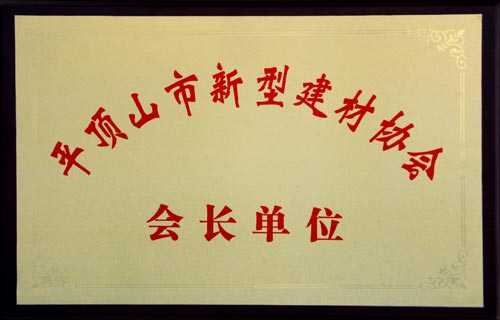 平顶山市新型建材协会
会长单位